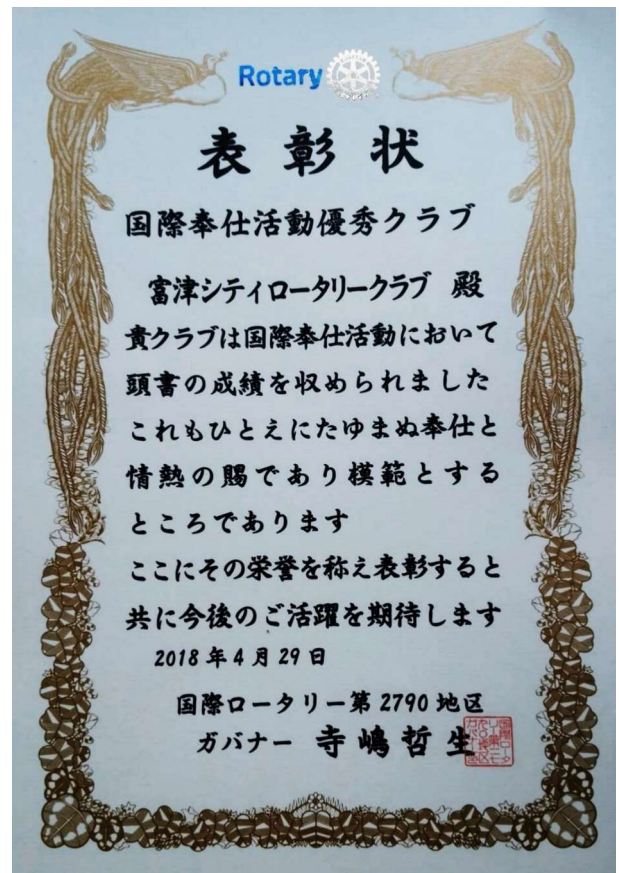 Rotary
表彰状
国際奉仕活動優秀クラブ
富津シティロータリークラブ 殿
貴クラブは国際奉仕活動において
頭書の成績を収められました
これもひとえにたゆまぬ奉仕と
情熱の賜であり模範とする
ところであります
ここにその栄誉を称え表彰すると
共に今後のご活躍を期待します
2018年4月29日
国際ロータリー第2790地区
ガバナー 寺嶋哲生